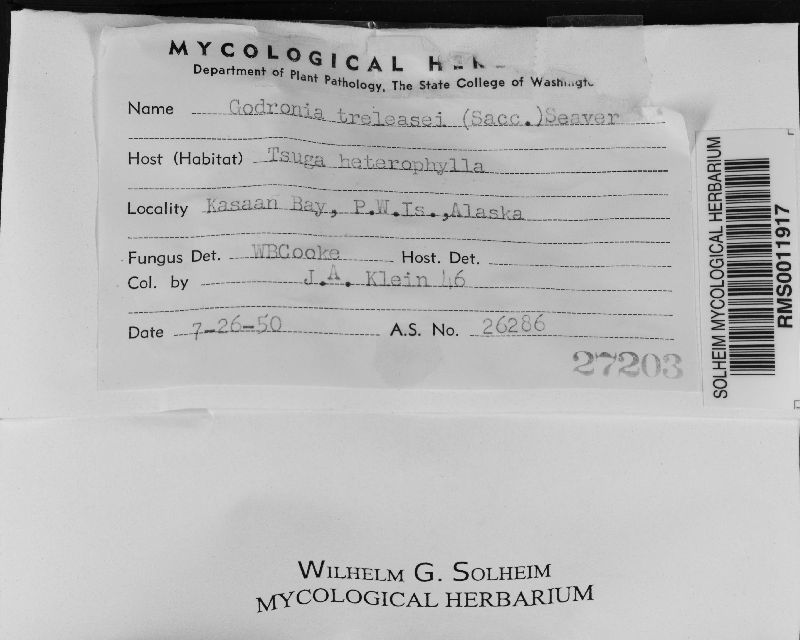 MYCOLOGICAL
Department of Plant Pathology, The State College of Washingt
Name Godronia treleasei (Sacc.)Seaver
Host (Habitat) Tsuga heterophylla
Locality Kasaan Bay, P.W.Is.,Alaska
Fungus Det. WBCooke Host. Det.
Col. by J.A. Klein 46
Date 7-26-50 A.S. No. 26286
27203
SOLHEIM MYCOLOGICAL HERBARIUM
RMS0011917
WILHELM G. SOLHEIM
MYCOLOGICAL HERBARIUM